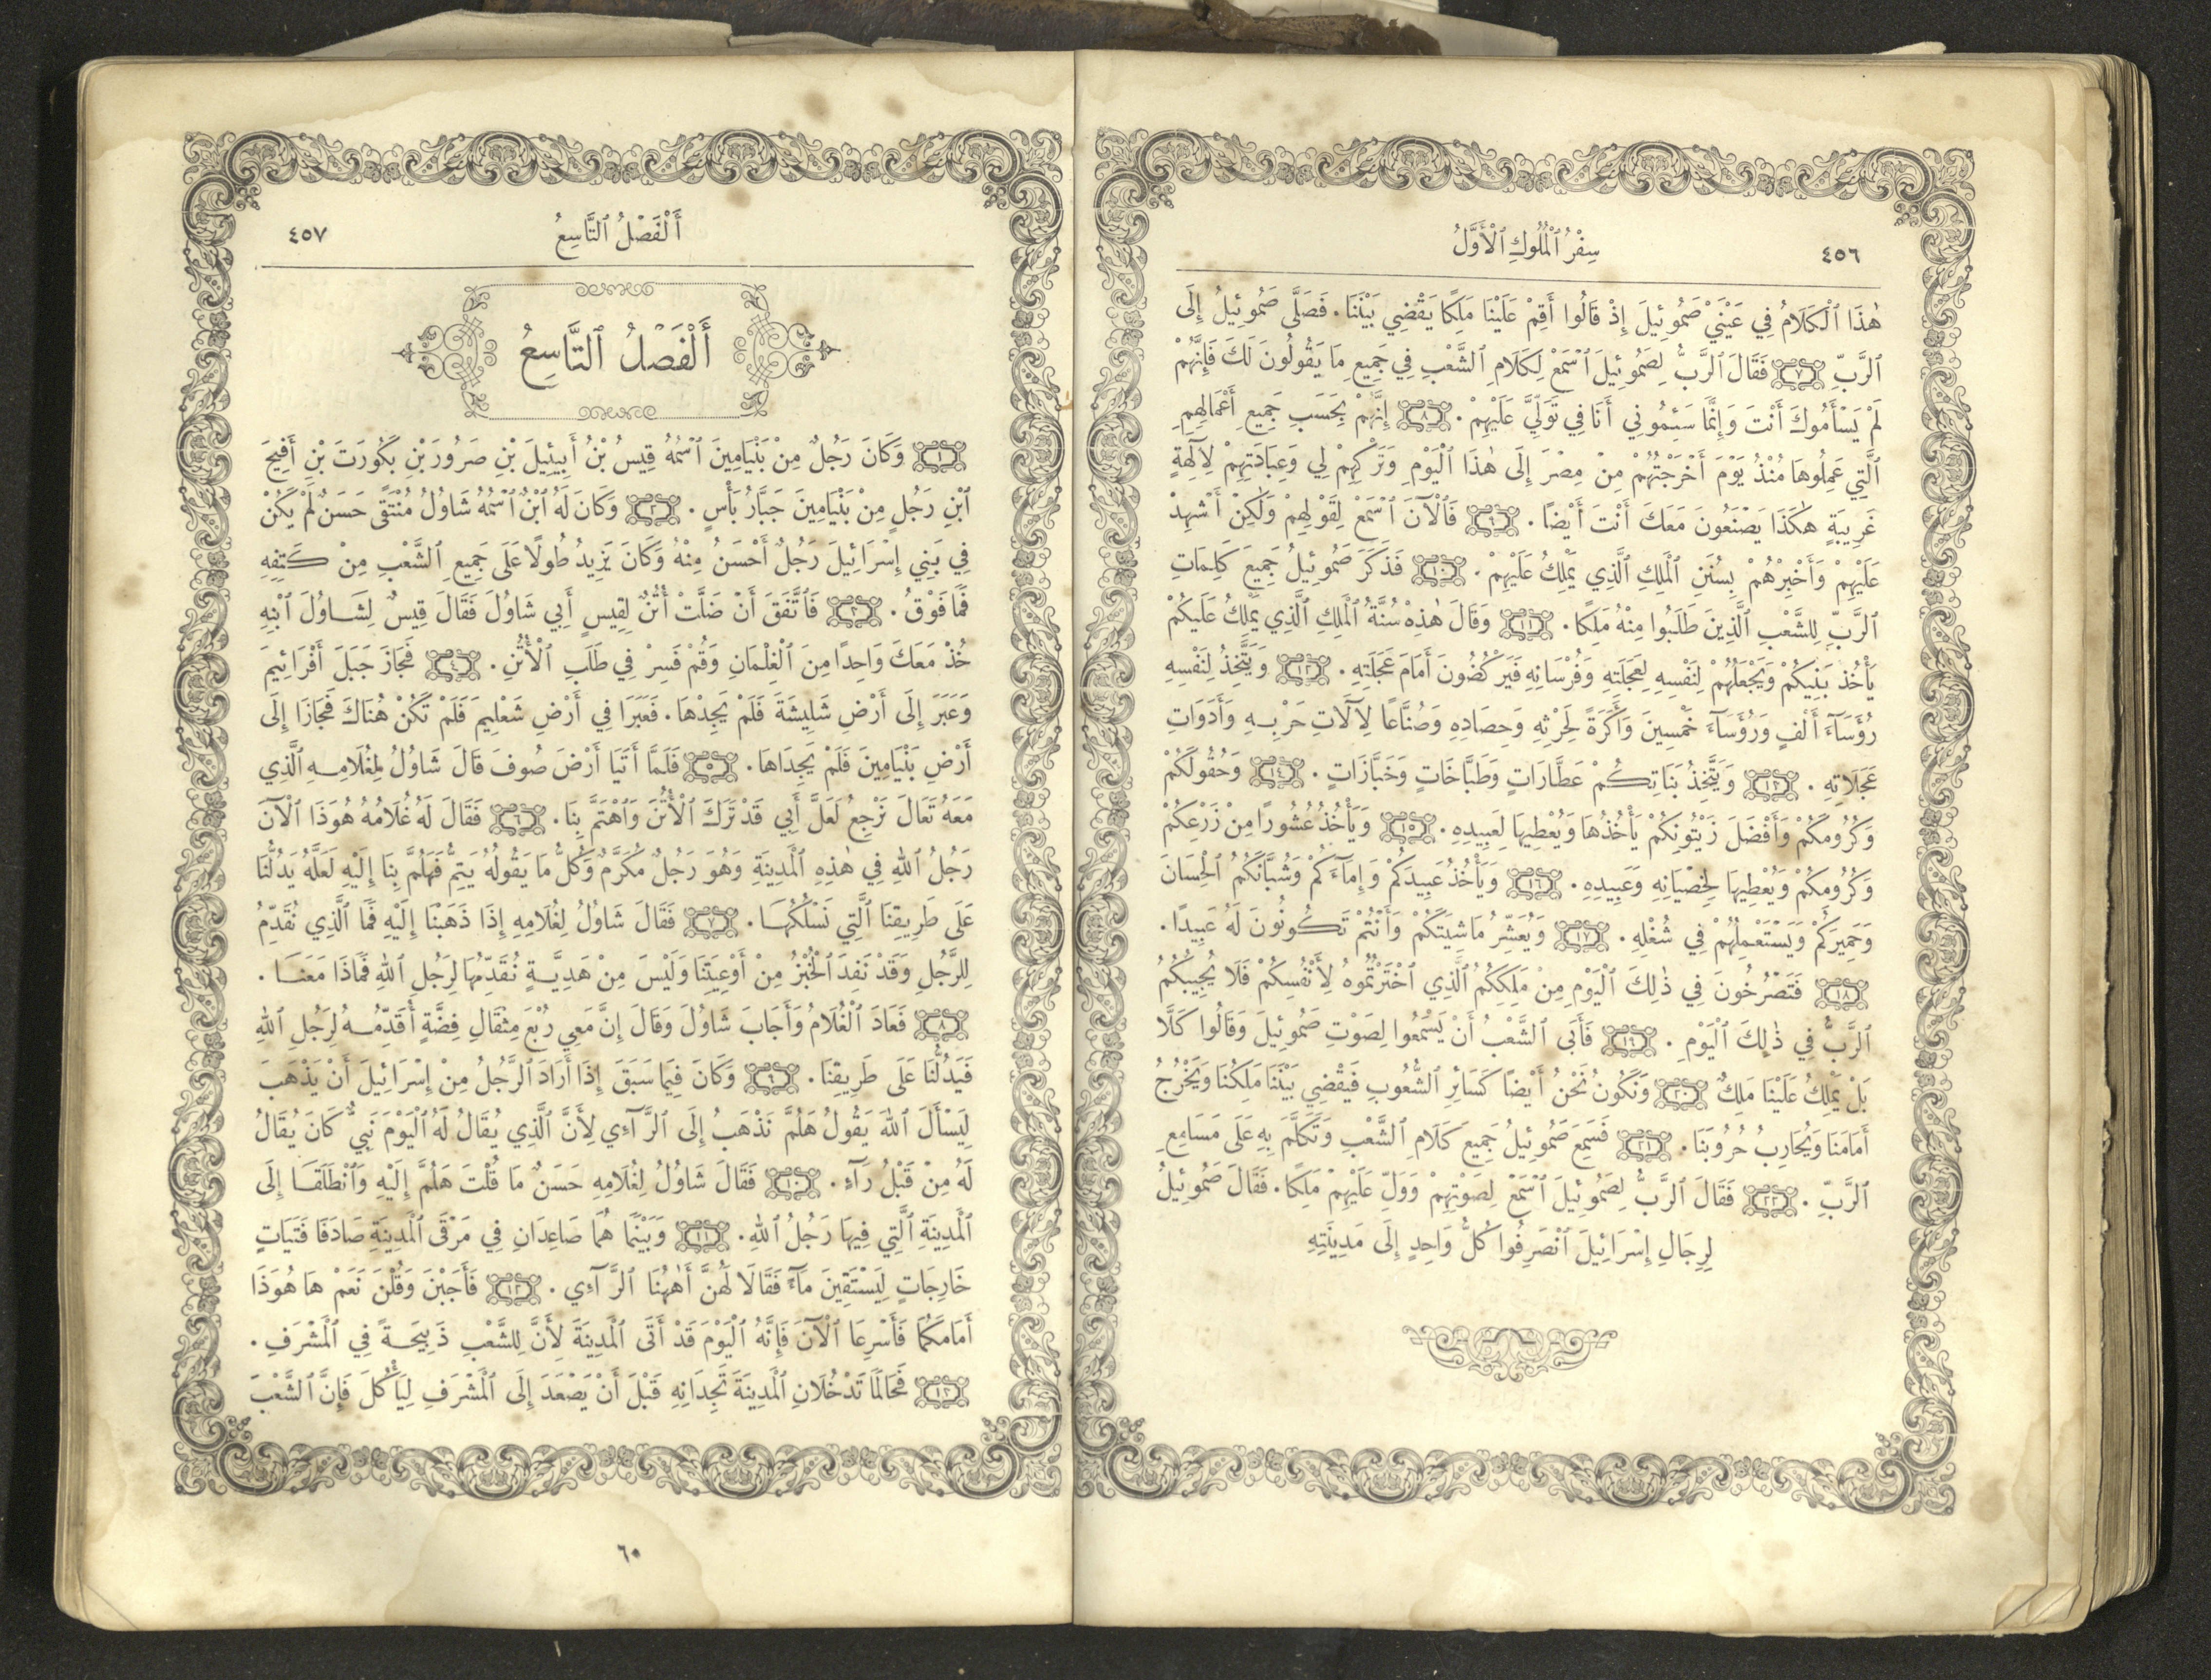 ٤٥٦
سِفْرُ ٱلْمُلُوكِ ٱلْأَوَّلُ
هٰذَا ٱلْكَلَامُ فِي عَيْنَيْ صَمُوئِيلَ إِذْ قَالُوا أَقِمْ عَلَيْنَا مَلِكًا يَقْضِي بَيْنَنَا. فَصَلَّى صَمُوئِيلُ إِلَى
ٱلرَّبِّ ٧ فَقَالَ ٱلرَّبُّ لِصَمُوئِيلَ ٱسْمَعْ لِكَلَامِ ٱلشَّعْبِ فِي جَمِيعِ مَا يَقُولُونَ لَكَ فَإِنَّهُمْ
لَمْ يَسْأَمُوكَ أَنْتَ وَإِنَّمَا سَئِمُونِي أَنَا فِي تَوَلِّيَّ عَلَيْهِمْ. ٨ إِنَّهُمْ بِحَسَبِ جَمِيعِ أَعْمَالِهِمِ
ٱلَّتِي عَمِلُوهَا مُنْذُ يَوْمَ أَخْرَجْتُهُمْ مِنْ مِصْرَ إِلَى هٰذَا ٱلْيَوْمِ وَتَرْكِهِمْ لِي وَعِبَادَتِهِمْ لِآلِهَةٍ
غَرِيبَةٍ هٰكَذَا يَصْنَعُونَ مَعَكَ أَنْتَ أَيْضًا. ٩ فَٱلْآنَ ٱسْمَعْ لِقَوْلِهِمْ وَلٰكِنْ أَشْهِدْ
عَلَيْهِمْ وَأَخْبِرْهُمْ بِسُنَنِ ٱلْمَلِكِ ٱلَّذِي يَمْلِكُ عَلَيْهِمْ. ١٠ فَذَكَرَ صَمُوئِيلُ جَمِيعَ كَلِمَاتِ
ٱلرَّبِّ لِلشَّعْبِ ٱلَّذِينَ طَلَبُوا مِنْهُ مَلِكًا. ١١ وَقَالَ هٰذِهْ سُنَّةُ ٱلْمَلِكِ ٱلَّذِي يَمْلِكُ عَلَيْكُمْ
يَأْخُذُ بَنِيكُمْ وَيَجْعَلُهُمْ لِنَفْسِهِ لِعَجَلَتِهِ وَفُرْسَانِهِ فَيَرْكُضُونَ أَمَامَ عَجَلَتِهِ. ١٢ وَيَتَّخِذُ لِنَفْسِهِ
رُؤَسَآءَ أَلْفٍ وَرُؤَسَآءَ خَمْسِينَ وَأَكَرَةً لِحَرْثِهِ وَحِصَادِهِ وَصُنَّاعًا لِآلَاتِ حَرْبِهِ وَأَدَوَاتِ
عَجَلَاتِهِ. ١٣ وَيَتَّخِذُ بَنَاتِكُمْ عَطَّارَاتٍ وَطَبَّاخَاتٍ وَخَبَّازَاتٍ. ١٤ وَحُقُولَكُمْ
وَكُرُومَكُمْ وَأَفْضَلَ زَيْتُونِكُمْ يَأْخُذُهَا وَيُعْطِيهَا لِعَبِيدِهِ. ١٥ وَيَأْخُذُ عُشُورًا مِنْ زَرْعِكُمْ
وَكُرُومِكُمْ وَيُعْطِيهَا لِخِصْيَانِهِ وَعَبِيدِهِ. ١٦ وَيَأْخُذُ عَبِيدَكُمْ وَإِمَآءَكُمْ وَشُبَّانَكُمُ ٱلْحِسَانَ
وَحَمِيرَكُمْ وَيَسْتَعْمِلُهُمْ فِي شُغْلِهِ. ١٧ وَيُعَشِّرُ مَاشِيَتَكُمْ وَأَنْتُمْ تَكُونُونَ لَهُ عَبِيدًا.
١٨ فَتَصْرُخُونَ فِي ذٰلِكَ ٱلْيَوْمِ مِنْ مَلِكِكُمُ ٱلَّذِي ٱخْتَرْتُمُوهُ لِأَنْفُسِكُمْ فَلَا يُجِيبُكُمُ
ٱلرَّبُّ فِي ذٰلِكَ ٱلْيَوْمِ. ١٩ فَأَبَى ٱلشَّعْبُ أَنْ يَسْمَعُوا لِصَوْتِ صَمُوئِيلَ وَقَالُوا كَلَّا
بَلْ يَمْلِكُ عَلَيْنَا مَلِكٌ ٢٠ وَنَكُونُ نَحْنُ أَيْضًا كَسَائِرِ ٱلشُّعُوبِ فَيَقْضِي بَيْنَنَا مَلِكُنَا وَيَخْرُجُ
أَمَامَنَا وَيُحَارِبُ حُرُوبَنَا. ٢١ فَسَمِعَ صَمُوئِيلُ جَمِيعَ كَلَامِ ٱلشَّعْبِ وَتَكَلَّمَ بِهِ عَلَى مَسَامِعِ
ٱلرَّبِّ. ٢٢ فَقَالَ ٱلرَّبُّ لِصَمُوئِيلَ ٱسْمَعْ لِصَوْتِهِمْ وَوَلِّ عَلَيْهِمْ مَلِكًا. فَقَالَ صَمُوئِيلُ
لِرِجَالِ إِسْرَائِيلَ ٱنْصَرِفُوا كُلُّ وَاحِدٍ إِلَى مَدِينَتِهِ
أَلْفَصْلُ ٱلتَّاسِعُ
٤٥٧
أَلْفَصْلُ ٱلتَّاسِعُ
١ وَكَانَ رَجُلٌ مِنْ بَنْيَامِينَ ٱسْمُهُ قِيسُ بْنُ أَبِيئِيلَ بْنِ صَرُورَ بْنِ بَكُورَتَ بْنِ أَفِيحَ
ٱبْنِ رَجُلٍ مِنْ بَنْيَامِينَ جَبَّارُ بَأْسٍ. ٢ وَكَانَ لَهُ ٱبْنٌ ٱسْمُهُ شَاوُلُ مُنْتَقًى حَسَنٌ لَمْ يَكُنْ
فِي بَنِي إِسْرَائِيلَ رَجُلٌ أَحْسَنُ مِنْهُ وَكَانَ يَزِيدُ طُولًا عَلَى جَمِيعِ ٱلشَّعْبِ مِنْ كَتِفِهِ
فَمَا فَوْقُ. ٣ فَٱتَّفَقَ أَنْ ضَلَّتْ أُتُنٌ لِقِيسٍ أَبِي شَاوُلَ فَقَالَ قِيسٌ لِشَاوُلَ ٱبْنِهِ
خُذْ مَعَكَ وَاحِدًا مِنَ ٱلْغِلْمَانِ وَقُمْ فَسِرْ فِي طَلَبِ ٱلْأُتُنِ. ٤ فَجَازَ جَبَلَ أَفْرَائِيمَ
وَعَبَرَ إِلَى أَرْضِ شَلِيشَةَ فَلَمْ يَجِدْهَا. فَعَبَرَا فِي أَرْضِ شَعْلِيمَ فَلَمْ تَكُنْ هُنَاكَ فَجَازَا إِلَى
أَرْضِ بَنْيَامِينَ فَلَمْ يَجِدَاهَا. ٥ فَلَمَّا أَتَيَا أَرْضَ صُوفَ قَالَ شَاوُلُ لِغُلَامِهِ ٱلَّذِي
مَعَهُ تَعَالَ نَرْجِعُ لَعَلَّ أَبِي قَدْ تَرَكَ ٱلْأُتُنَ وَٱهْتَمَّ بِنَا. ٦ فَقَالَ لَهُ غُلَامُهُ هُوَذَا ٱلْآنَ
رَجُلُ ٱللهِ فِي هٰذِهِ ٱلْمَدِينَةِ وَهُوَ رَجُلٌ مُكَرَّمٌ وَكُلُّ مَا يَقُولُهُ يَتِمُّ فَهَلُمَّ بِنَا إِلَيْهِ لَعَلَّهُ يَدُلُّنَا
عَلَى طَرِيقِنَا ٱلَّتِي نَسْلُكُهَا. ٧ فَقَالَ شَاوُلُ لِغُلَامِهِ إِذَا ذَهَبْنَا إِلَيْهِ فَمَا ٱلَّذِي نُقَدِّمُ
لِلرَّجُلِ وَقَدْ نَفِدَ ٱلْخُبْزُ مِنْ أَوْعِيَتِنَا وَلَيْسَ مِنْ هَدِيَّةٍ نُقَدِّمُهَا لِرَجُلِ ٱللهِ فَمَاذَا مَعَنَا.
٨ فَعَادَ ٱلْغُلَامُ وَأَجَابَ شَاوُلَ وَقَالَ إِنَّ مَعِي رُبْعَ مِثْقَالِ فِضَّةٍ أُقَدِّمُهُ لِرَجُلِ ٱللهِ
فَيَدُلُّنَا عَلَى طَرِيقِنَا. ٩ وَكَانَ فِيمَا سَبَقَ إِذَا أَرَادَ ٱلرَّجُلُ مِنْ إِسْرَائِيلَ أَنْ يَذْهَبَ
لِيَسْأَلَ ٱللهَ يَقُولُ هَلُمَّ نَذْهَبُ إِلَى ٱلرَّآءِي لِأَنَّ ٱلَّذِي يُقَالُ لَهُ ٱلْيَوْمَ نَبِيٌّ كَانَ يُقَالُ
لَهُ مِنْ قَبْلُ رَآءٍ. ١٠ فَقَالَ شَاوُلُ لِغُلَامِهِ حَسَنٌ مَا قُلْتَ هَلُمَّ إِلَيْهِ وَٱنْطَلَقَا إِلَى
ٱلْمَدِينَةِ ٱلَّتِي فِيهَا رَجُلُ ٱللهِ. ١١ وَبَيْنَمَا هُمَا صَاعِدَانِ فِي مَرْقَى ٱلْمَدِينَةِ صَادَفَا فَتَيَاتٍ
خَارِجَاتٍ لِيَسْتَقِينَ مَآءً فَقَالَا لَهُنَّ أَهٰهُنَا ٱلرَّآءِي. ١٢ فَأَجَبْنَ وَقُلْنَ نَعَمْ هَا هُوَذَا
أَمَامَكُمَا فَأَسْرِعَا ٱلْآنَ فَإِنَّهُ ٱلْيَوْمَ قَدْ أَتَى ٱلْمَدِينَةَ لِأَنَّ لِلشَّعْبِ ذَبِيحَةً فِي ٱلْمَشْرَفِ.
١٣ فَحَالَمَا تَدْخُلَانِ ٱلْمَدِينَةَ تَجِدَانِهِ قَبْلَ أَنْ يَصْعَدَ إِلَى ٱلْمَشْرَفِ لِيَأْكُلَ فَإِنَّ ٱلشَّعْبَ
٦٠